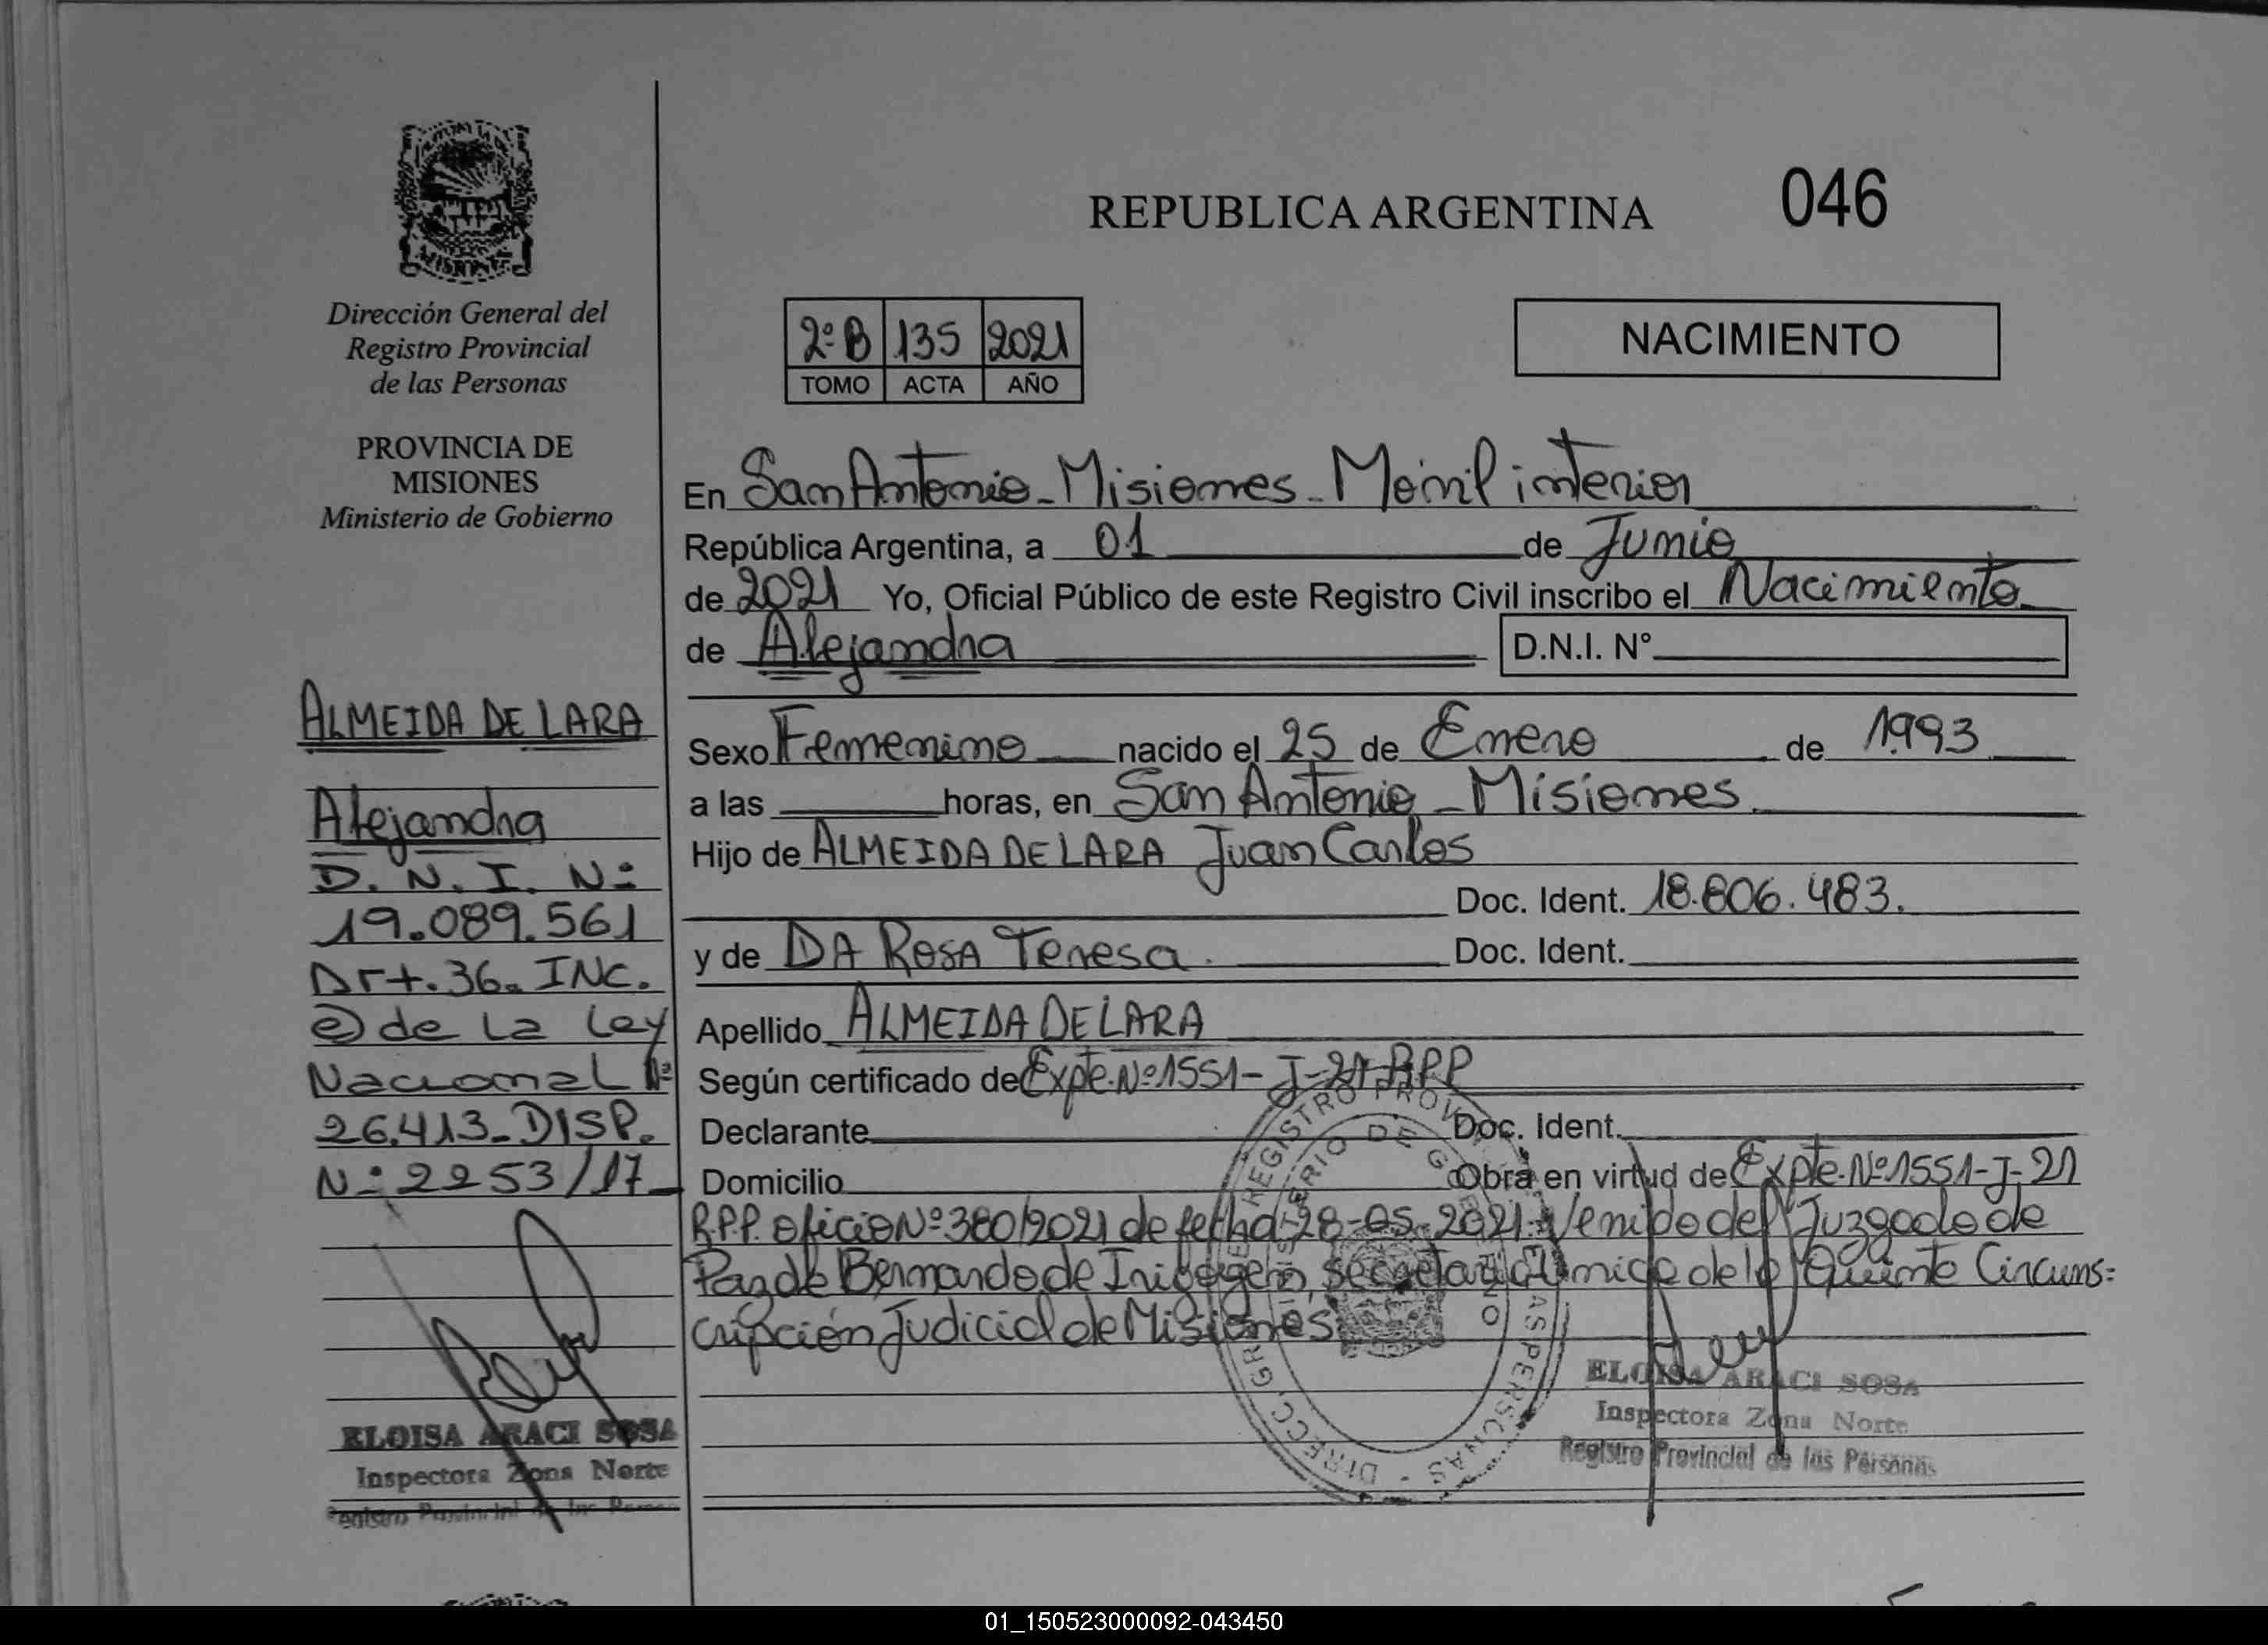 MISIONES
Dirección General del
Registro Provincial
de las Personas
PROVINCIA DE
MISIONES
Ministerio de Gobierno
ALMEIDA DE LARA
Alejandra
D. N. I. Nº
19.089.561
Art. 36. INC.
e) de la Ley
Nacional Nº
26.413. DISP.
Nº 2253/17
ELOISA ARACI SOSA
Inspectora Zona Norte
REPUBLICA ARGENTINA 046
2º B 135 2021
TOMO ACTA AÑO
NACIMIENTO
En San Antonio - Misiones - Movil interior
República Argentina, a 01 de Junio
de 2021 Yo, Oficial Público de este Registro Civil inscribo el Nacimiento
de Alejandra D.N.I. Nº
Sexo Femenino nacido el 25 de Enero de 1993
a las horas, en San Antonio - Misiones.
Hijo de ALMEIDA DE LARA Juan Carlos
Doc. Ident. 18.806.483.
y de DA ROSA Teresa. Doc. Ident.
Apellido ALMEIDA DE LARA
Según certificado de Expte. Nº 1551-J-21-RPP
Declarante Doc. Ident.
Domicilio Obra en virtud de Expte. Nº 1551-J-21
R.P.P. Oficio Nº 380/2021 de fecha 28-05-2021. Venido del Juzgado de
Paz de Bernardo de Irigoyen, secretaria Unica de la Quinta Circuns=
cripción Judicial de Misiones
ELOISA ARACI SOSA
Inspectora Zona Norte
Registro Provincial de las Personas
01_150523000092-043450